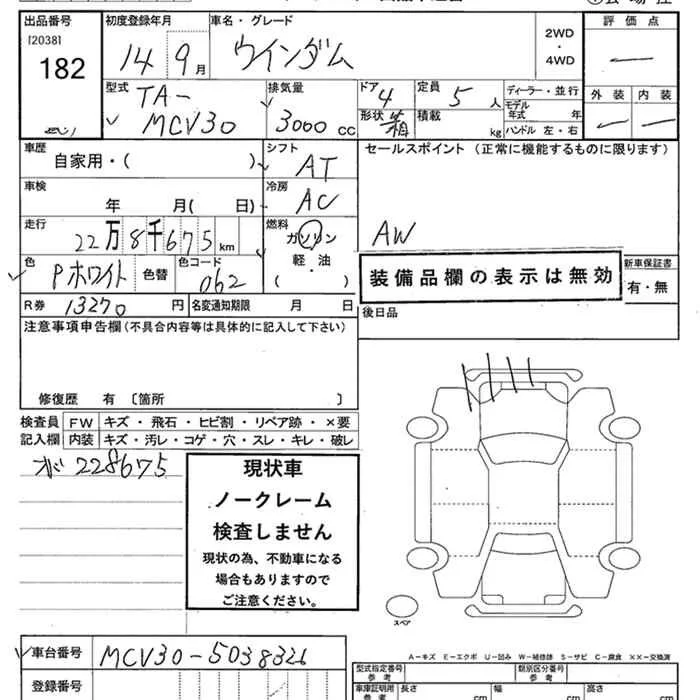 出品番号 初度登録年月 車名・グレード 2WD・4WD 評価点
[2038]
182 14 9月 ウインダム
型式 排気量 ドア 定員 ディーラー・並行 外装 内装
TA- 4 5人 モデル年式 年
MCV30 3000cc 形状 箱 積載 kg ハンドル 左・右
車歴 シフト セールスポイント(正常に機能するものに限ります)
自家用・( ) AT
車検 冷房
年 月( 日) AC
走行 燃料
22万8千675km ガソリン AW
軽・油
色 色コード ( ) 装備品欄の表示は無効 新車保証書
Pホワイト 色替 062 有・無
R券 13270円 名変通知期限 月 日 後日品
注意事項申告欄(不具合内容等は具体的に記入して下さい)
修復歴 有 〔箇所 〕
検査員 FW キズ・飛石・ヒビ割・リペア跡・×要
記入欄 内装 キズ・汚レ・コゲ・穴・スレ・キレ・破レ
228675
現状車
ノークレーム
検査しません
現状の為、不動車になる
場合もありますので
ご注意ください。
スペア
A-キズ E-エクボ U-凹み W-補修跡 S-サビ C-腐食 ××-交換済
車台番号 MCV30-5038326 型式指定番号 類別区分番号
参考 参考
登録番号 車庫証明用 長さ 幅 高さ
参考 cm cm cm